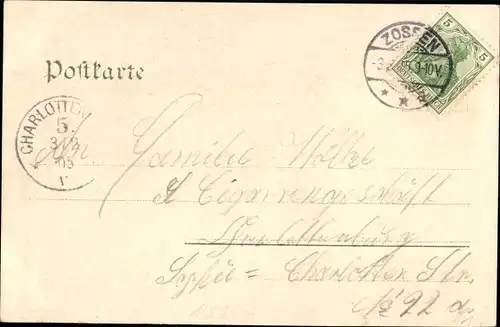 Postkarte
ZOSSEN
9-10V.
5
5
CHARLOTTEN
5.
V
An Familie
Cigarrengeschäft
Charlottenburg
Sophie = Charlotten Str.
№ 92 a